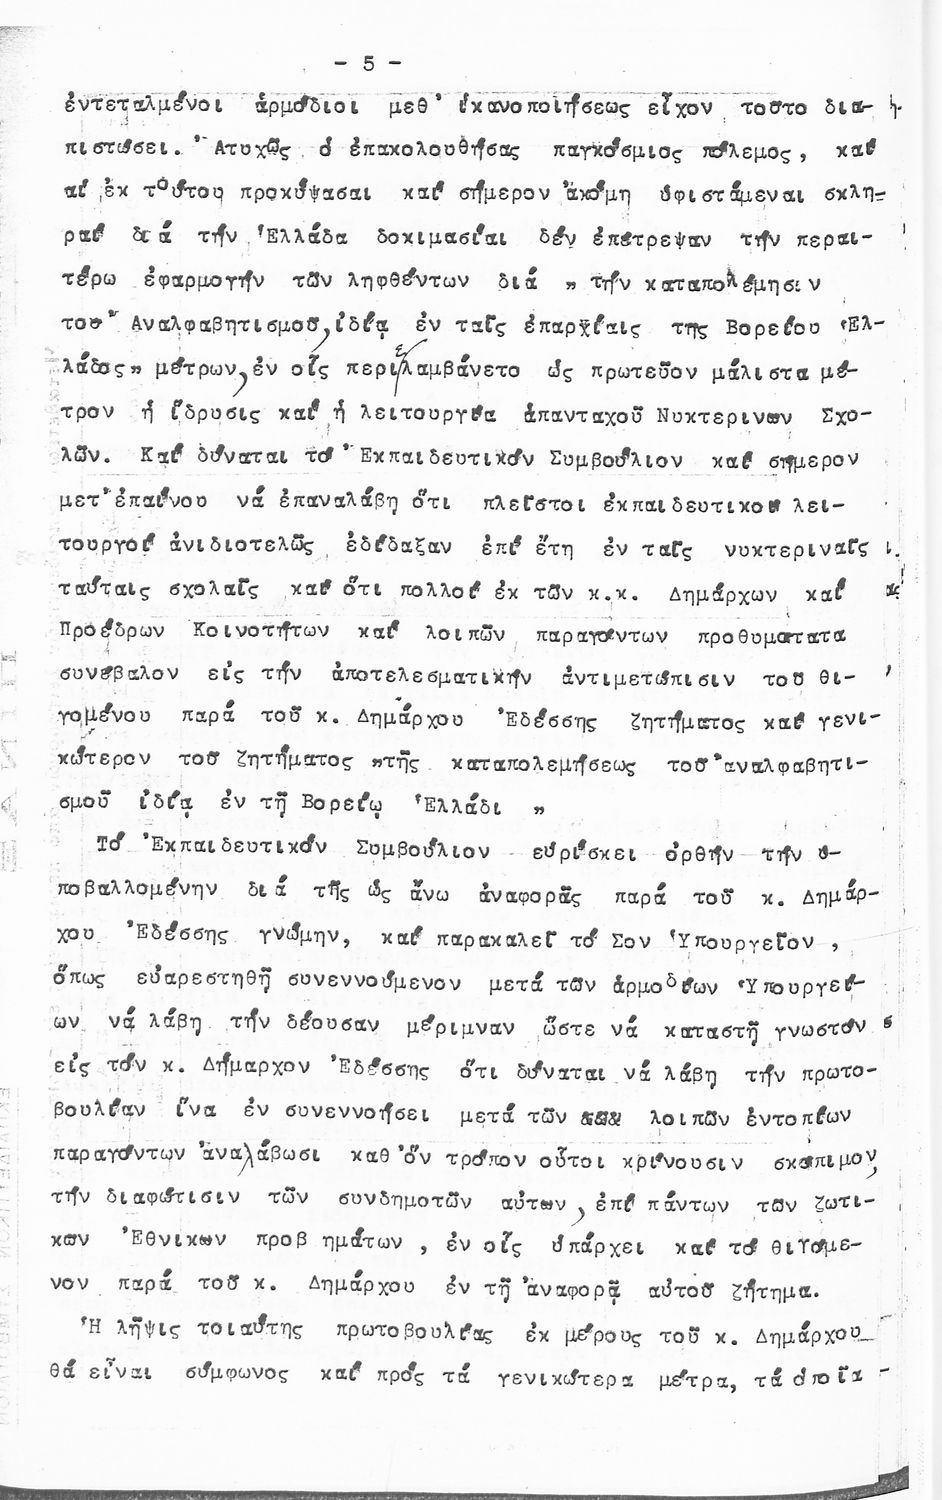 - 5 -
ἐντεταλμένοι ἁρμόδιοι μεθ' ἱκανοποιήσεως εἶχον τοῦτο δια-
πιστώσει. Ἀτυχῶς ὁ ἐπακολουθήσας παγκόσμιος πόλεμος, καί
αἱ ἐκ τούτου προκύψασαι καί σήμερον ἀκόμη ὑφιστάμεναι σκλη-
ραί διά τήν Ἑλλάδα δοκιμασίαι δέν ἐπέτρεψαν τήν περαι-
τέρω ἐφαρμογήν τῶν ληφθέντων διά " τήν καταπολέμησιν
τοῦ Ἀναλφαβητισμοῦ, ἰδίᾳ ἐν ταῖς ἐπαρχίαις τῆς Βορείου Ἑλ-
λάδος" μέτρων, ἐν οἷς περιελαμβάνετο ὡς πρωτεῦον μάλιστα μέ-
τρον ἡ ἵδρυσις καί ἡ λειτουργία ἁπανταχοῦ Νυκτερινῶν Σχο-
λῶν. Καί δύναται τό Ἐκπαιδευτικόν Συμβούλιον καί σήμερον
μετ' ἐπαίνου νά ἐπαναλάβη ὅτι πλεῖστοι ἐκπαιδευτικοί λει-
τουργοί ἀνιδιοτελῶς ἐδίδαξαν ἐπί ἔτη ἐν ταῖς νυκτεριναῖς
ταύταις σχολαῖς καί ὅτι πολλοί ἐκ τῶν κ.κ. Δημάρχων καί
Προέδρων Κοινοτήτων καί λοιπῶν παραγόντων προθυμότατα
συνέβαλον εἰς τήν ἀποτελεσματικήν ἀντιμετώπισιν τοῦ θι-
γομένου παρά τοῦ κ. Δημάρχου Ἐδέσσης ζητήματος καί γενι-
κώτερον τοῦ ζητήματος "τῆς καταπολεμήσεως τοῦ ἀναλφαβητι-
σμοῦ ἰδίᾳ ἐν τῇ Βορείῳ Ἑλλάδι "
Τό Ἐκπαιδευτικόν Συμβούλιον εὑρίσκει ὀρθήν τήν ὑ-
ποβαλλομένην διά τῆς ὡς ἄνω ἀναφορᾶς παρά τοῦ κ. Δημάρ-
χου Ἐδέσσης γνώμην, καί παρακαλεῖ τό Σον Ὑπουργεῖον ,
ὅπως εὐαρεστηθῇ συνεννούμενον μετά τῶν ἁρμοδίων Ὑπουργεί-
ων νά λάβη τήν δέουσαν μέριμναν ὥστε νά καταστῇ γνωστόν
εἰς τόν κ. Δήμαρχον Ἐδέσσης ὅτι δύναται νά λάβη τήν πρωτο-
βουλίαν ἵνα ἐν συνεννοήσει μετά τῶν λοιπῶν ἐντοπίων
παραγόντων ἀναλάβωσι καθ' ὅν τρόπον οὗτοι κρίνουσιν σκόπιμον,
τήν διαφώτισιν τῶν συνδημοτῶν αὐτῶν, ἐπί πάντων τῶν ζωτι-
κῶν Ἐθνικῶν προβ ημάτων , ἐν οἷς ὑπάρχει καί τό θιγόμε-
νον παρά τοῦ κ. Δημάρχου ἐν τῇ ἀναφορᾷ αὐτοῦ ζήτημα.
Ἡ λῆψις τοιαύτης πρωτοβουλίας ἐκ μέρους τοῦ κ. Δημάρχου
θά εἶναι σύμφωνος καί πρός τά γενικώτερα μέτρα, τά ὁποῖα